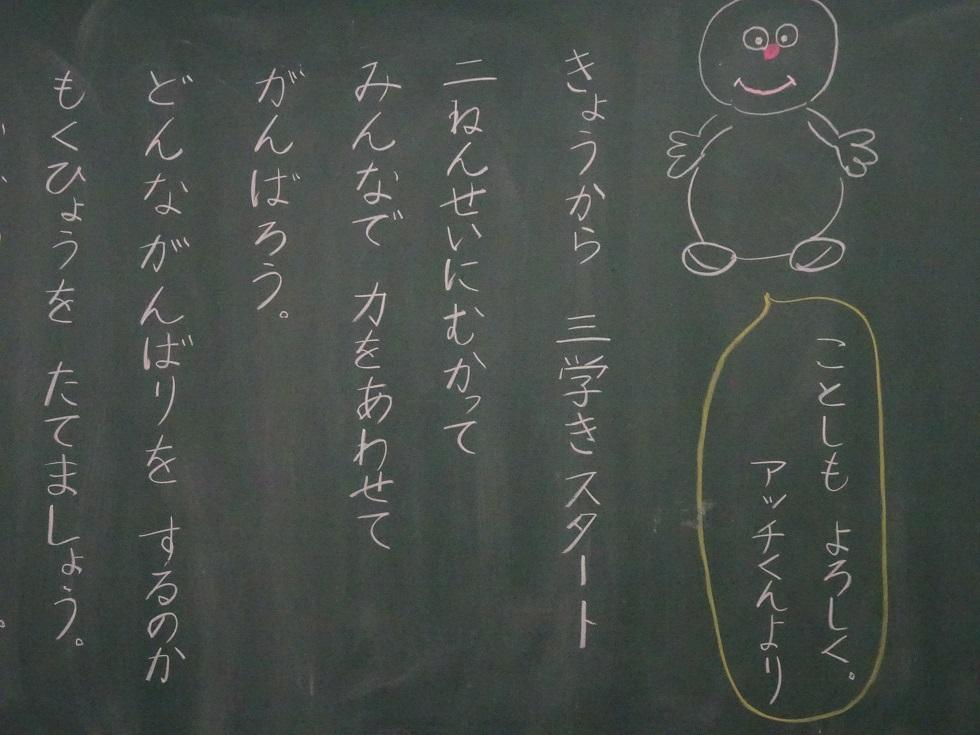 ことしも よろしく。
アッチくんより
きょうから 三学きスタート
二ねんせいにむかって
みんなで 力をあわせて
がんばろう。
どんながんばりを するのか
もくひょうを たてましょう。